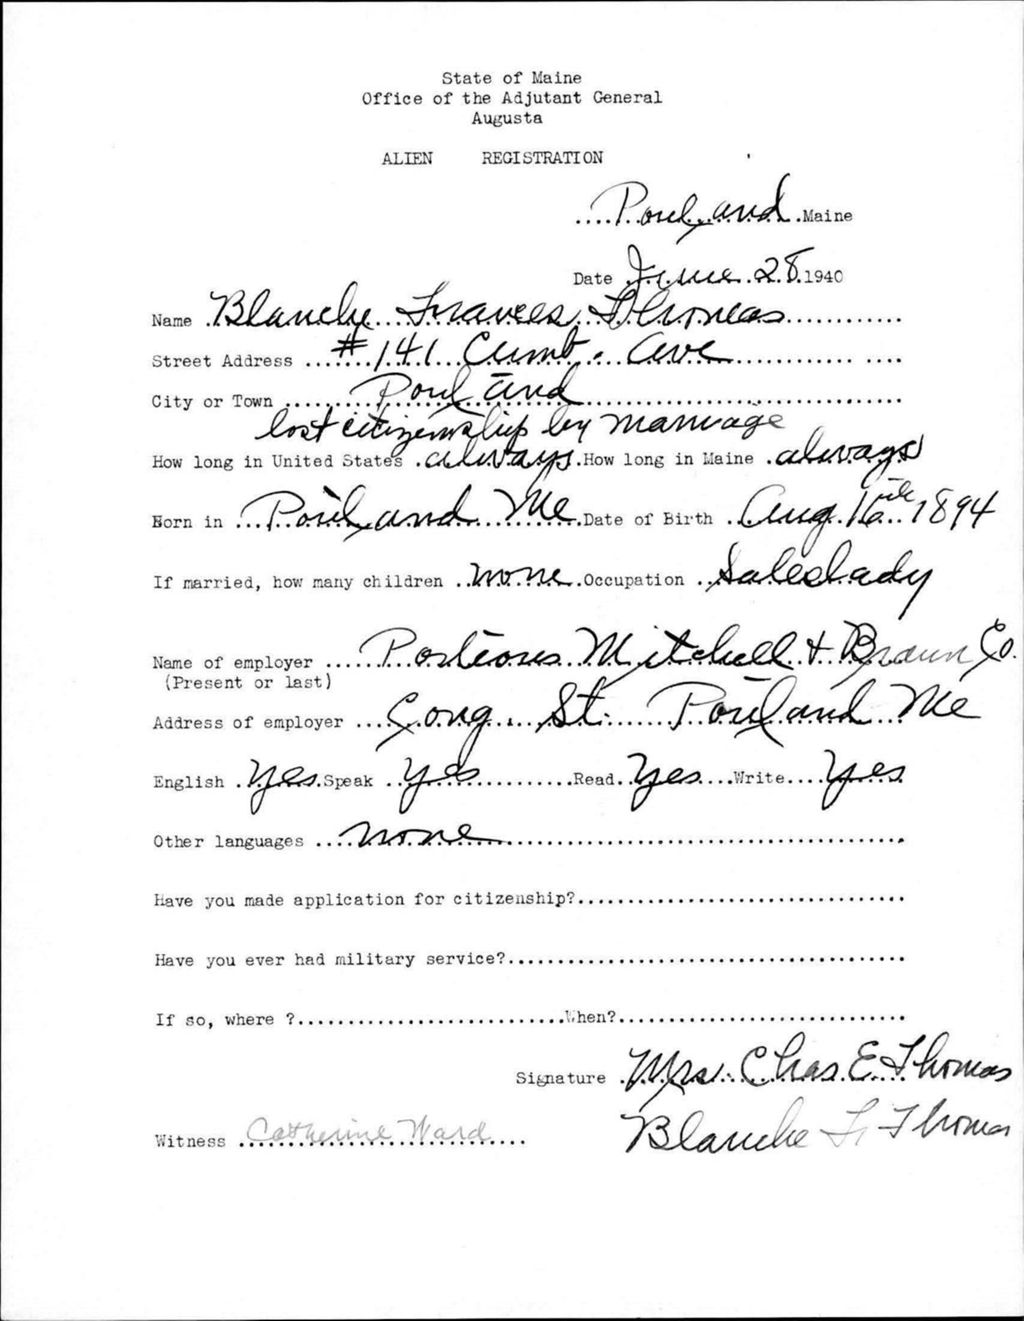 State of Maine
Office of the Adjutant General
Augusta
ALIEN REGISTRATION
....Portland.Maine
Date June 28.1940
Name .Blanche Frances Thomas
Street Address #141 Cumb. Ave
City or Town Portland
lost citizenship by marriage
How long in United States .always.How long in Maine .always
Born in ...Portland Me.Date of Birth ..Aug 16th 1894
If married, how many children ..none.Occupation ..Saleslady
Name of employer .....Porteous Mitchell & Braun Co.
(Present or last)
Address of employer ...Cong. St. Portland Me
English .Yes.Speak ..Yes..........Read..Yes...Write....Yes
Other languages ....none
Have you made application for citizenship?.................................
Have you ever had military service?........................................
If so, where ?...........................When?.............................
Signature .Mrs. Chas. E. Thomas
Witness ..Catherine Ward.... Blanche F. Thomas